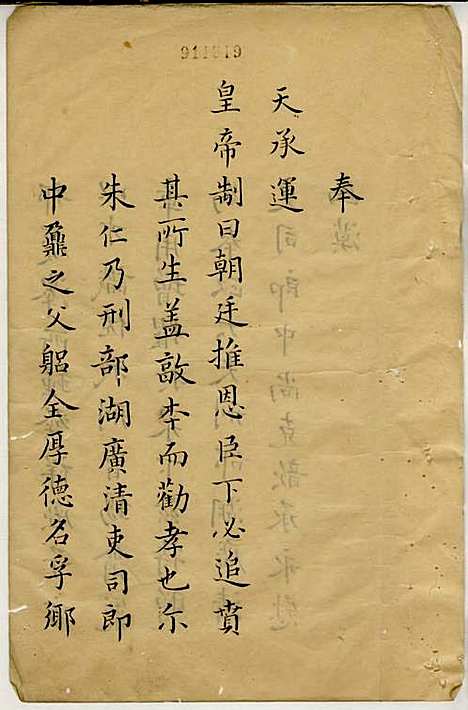 911619
奉
天承運
皇帝制曰朝廷推恩臣下必追賁
其所生盖敦本而勸孝也尔
朱仁乃刑部湖廣清吏司郎
中鼐之父躬全厚德名孚鄉